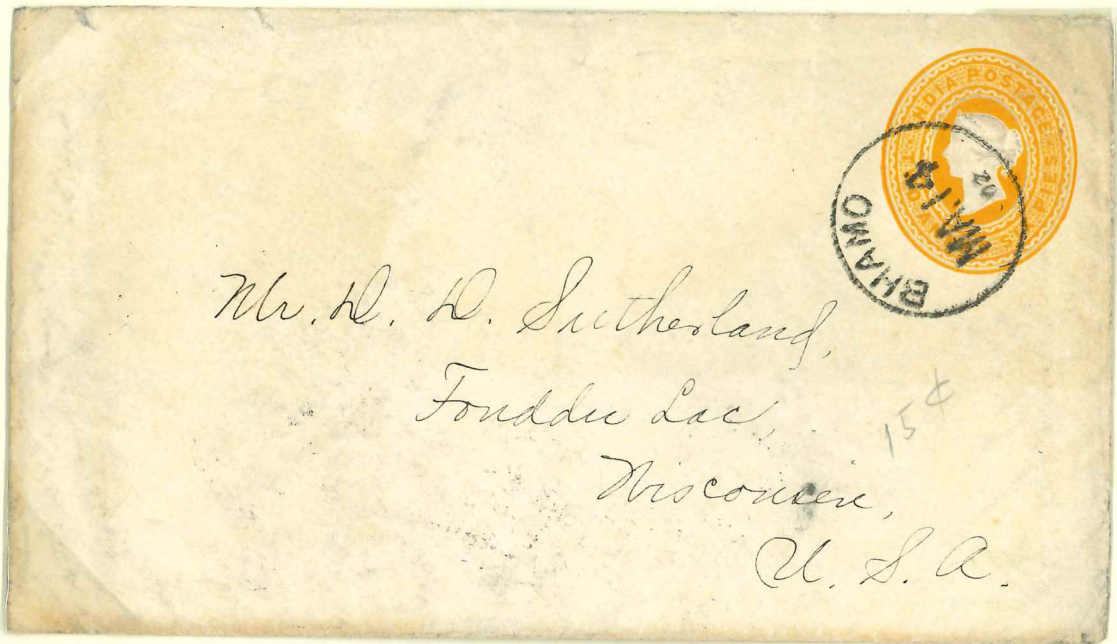 INDIA POSTAGE
BHAMO
MA.14
02
Mr. D. D. Sutherland,
Fonddu Lac,
Wisconsin,
U. S. A.
15¢